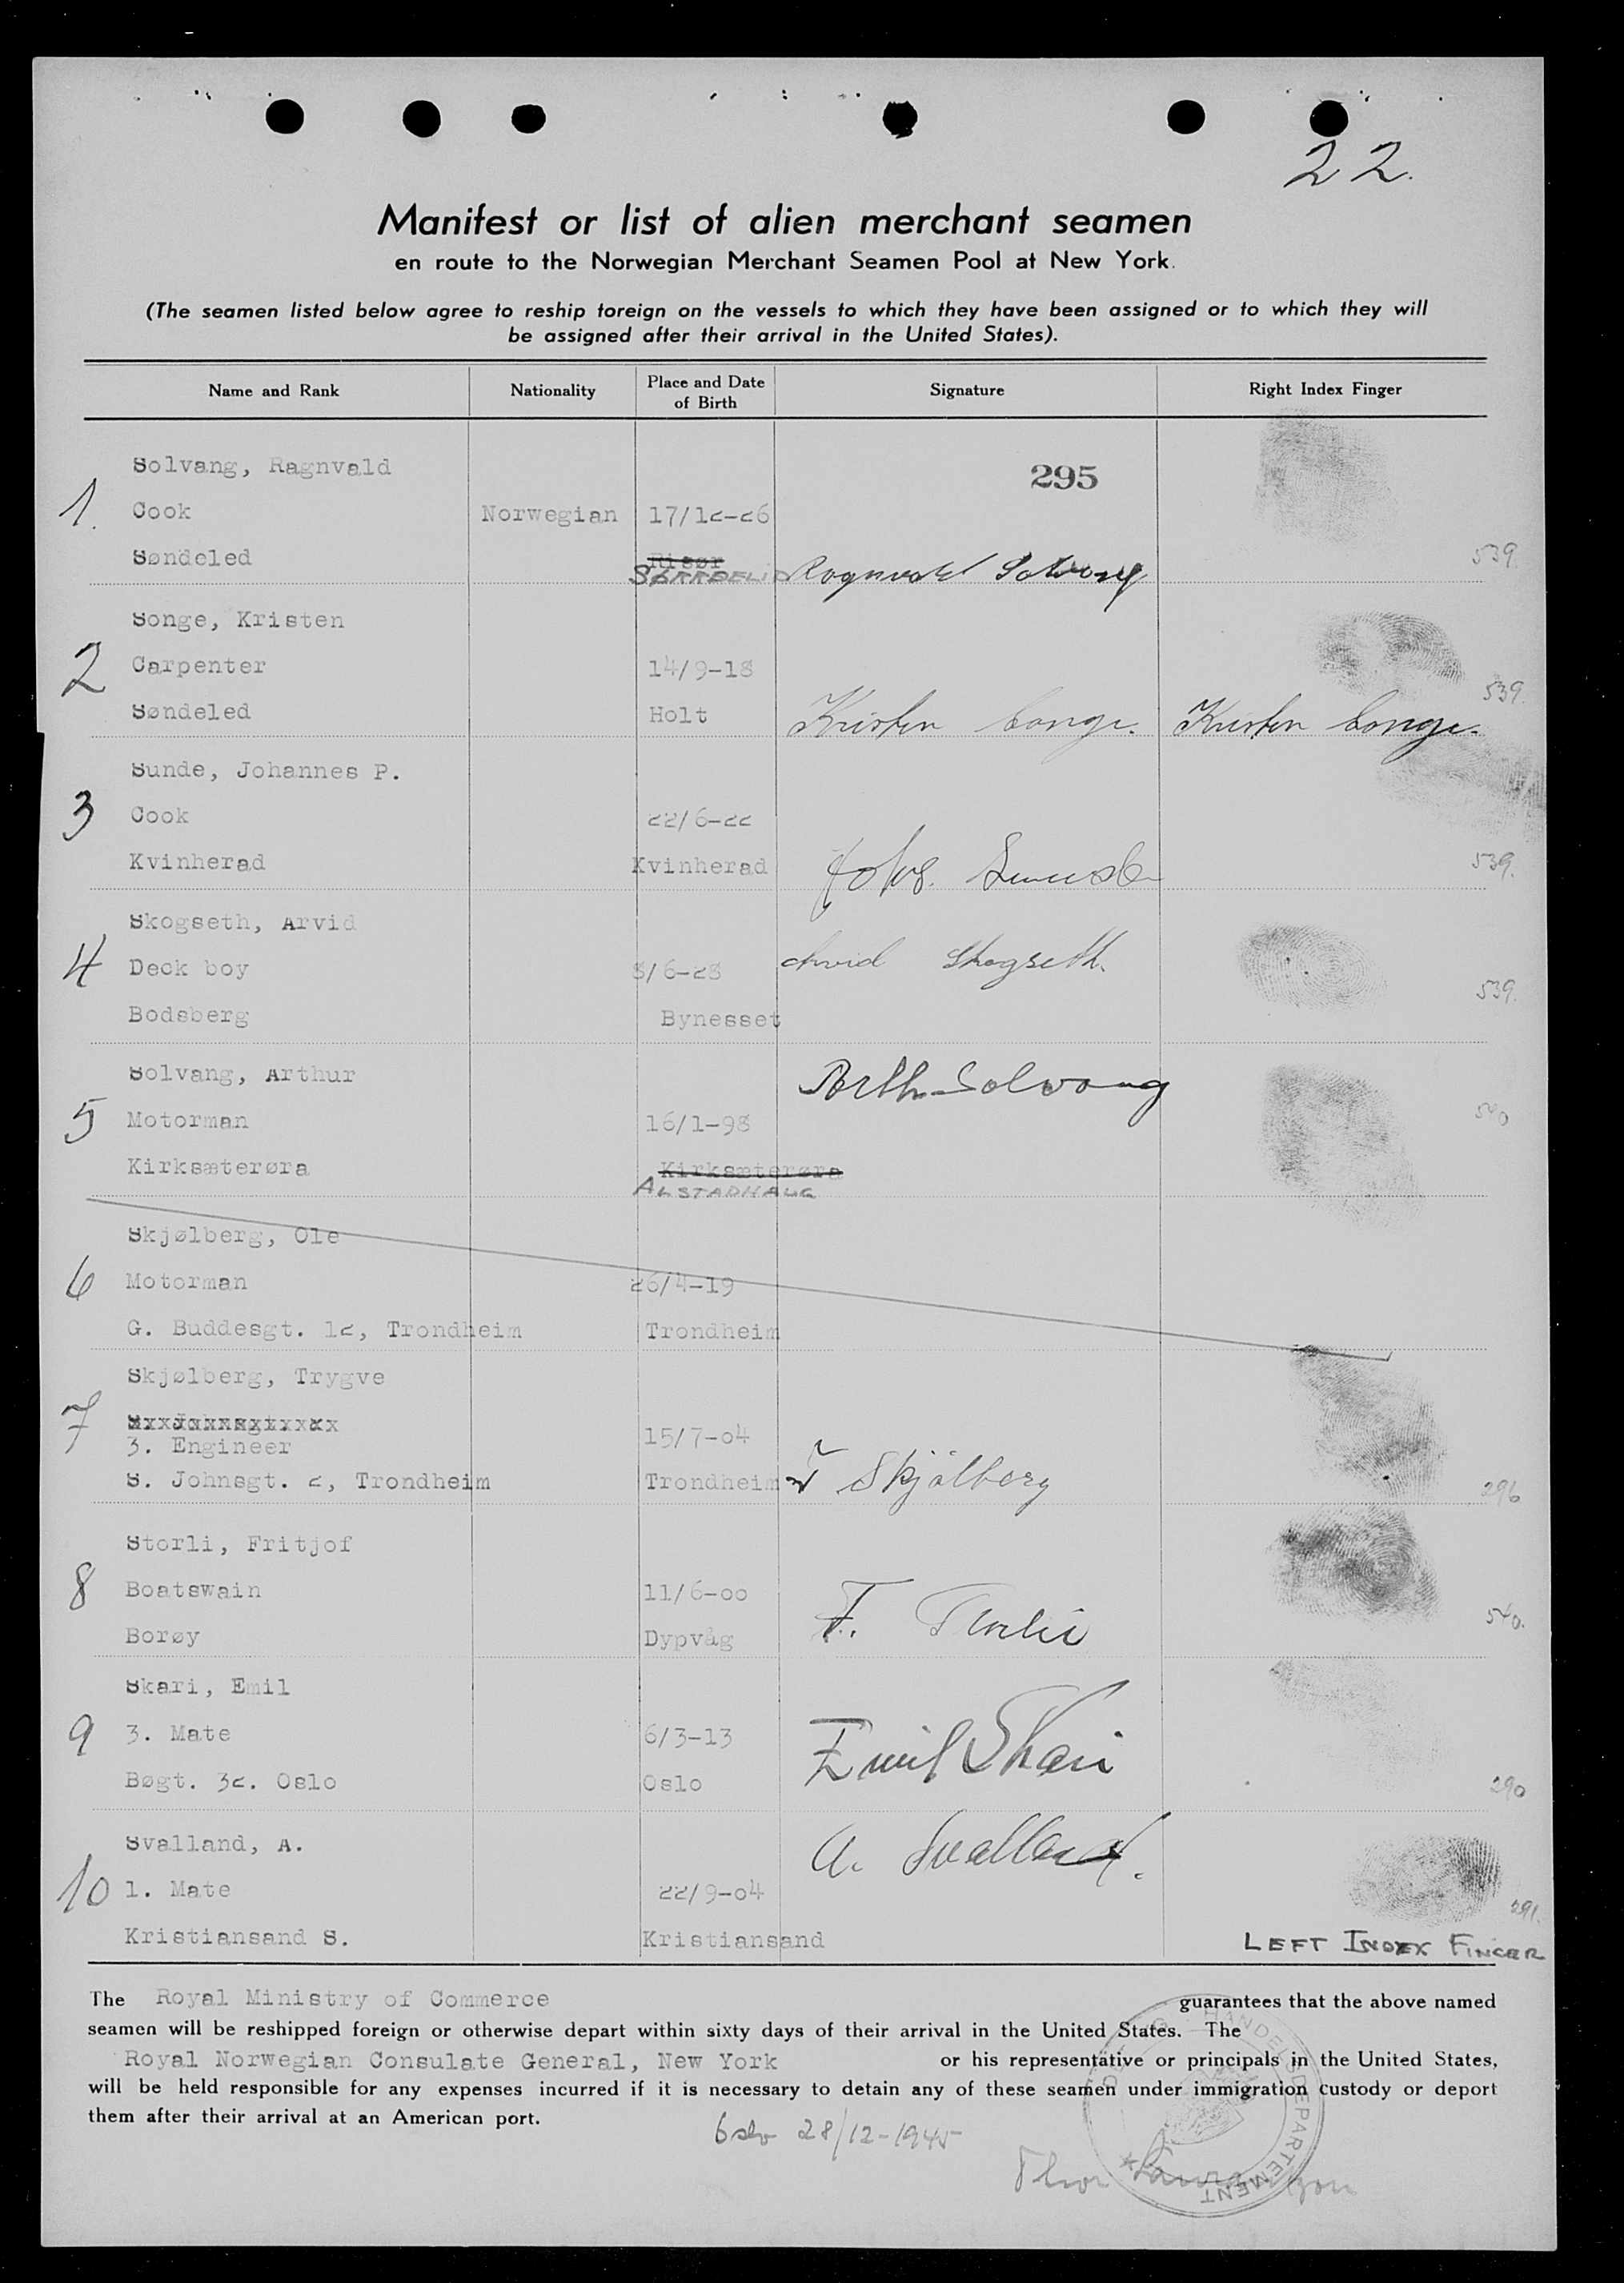 22.
Manifest or list of alien merchant seamen
en route to the Norwegian Merchant Seamen Pool at New York.
(The seamen listed below agree to reship foreign on the vessels to which they have been assigned or to which they will
be assigned after their arrival in the United States).
Name and Rank Nationality Place and Date of Birth Signature Right Index Finger
Solvang, Ragnvald 295
1. Cook Norwegian 17/12-26
Søndeled Risør 539.
SØNDELED Ragnvald Solvang
Songe, Kristen
2 Carpenter 14/9-18
Søndeled Holt 539.
Kristen Songe. Kristen Songe.
Sunde, Johannes P.
3 Cook 22/6-22
Kvinherad Kvinherad Johs. Sunde 539.
Skogseth, Arvid
4 Deck boy 8/6-28 Arvid Skogseth.
Bodsberg Bynesset 539.
Solvang, Arthur Arth. Solvang
5 Motorman 16/1-98 540
Kirksæterøra Kirksæterøra
ALSTADHAUG
Skjølberg, Ole
6 Motorman 26/4-19
G. Buddesgt. 12, Trondheim Trondheim
Skjølberg, Trygve
7 3. Engineer 15/7-04
S. Johnsgt. 2, Trondheim Trondheim T Skjølberg 296
Storli, Fritjof
8 Boatswain 11/6-00
Borøy Dypvåg F. Storli 540.
Skari, Emil
9 3. Mate 6/3-13 Emil Skari
Bøgt. 32. Oslo Oslo 290
Svalland, A. A. Svalland.
10 1. Mate 22/9-04 291.
Kristiansand S. Kristiansand LEFT INDEX FINGER
The Royal Ministry of Commerce guarantees that the above named
seamen will be reshipped foreign or otherwise depart within sixty days of their arrival in the United States. The
Royal Norwegian Consulate General, New York or his representative or principals in the United States,
will be held responsible for any expenses incurred if it is necessary to detain any of these seamen under immigration custody or deport
them after their arrival at an American port.
Oslo 28/12-1945
HANDELSDEPARTEMENT
Thor